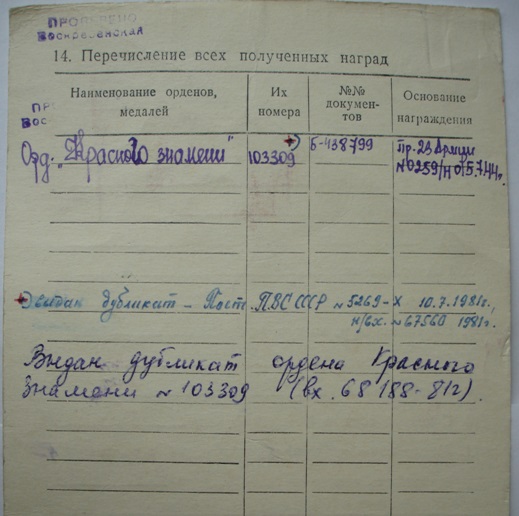 ПРОВЕРЕНО
Воскресенская
14. Перечисление всех полученных наград
Наименование орденов, медалей
Их номера
№№ документов
Основание награждения
ПР
ВОС
Орд. „Красного знамени" 103309 Б-438799 Пр. 23 Армии
№0259/н от 5.7.44г.
выдан дубликат – Пост. ПВС СССР №5269-X 10.7.1981г.,
н/вх. №67560 1981г.
Выдан дубликат ордена Красного
Знамени №103309 (вх. 68188-81г).